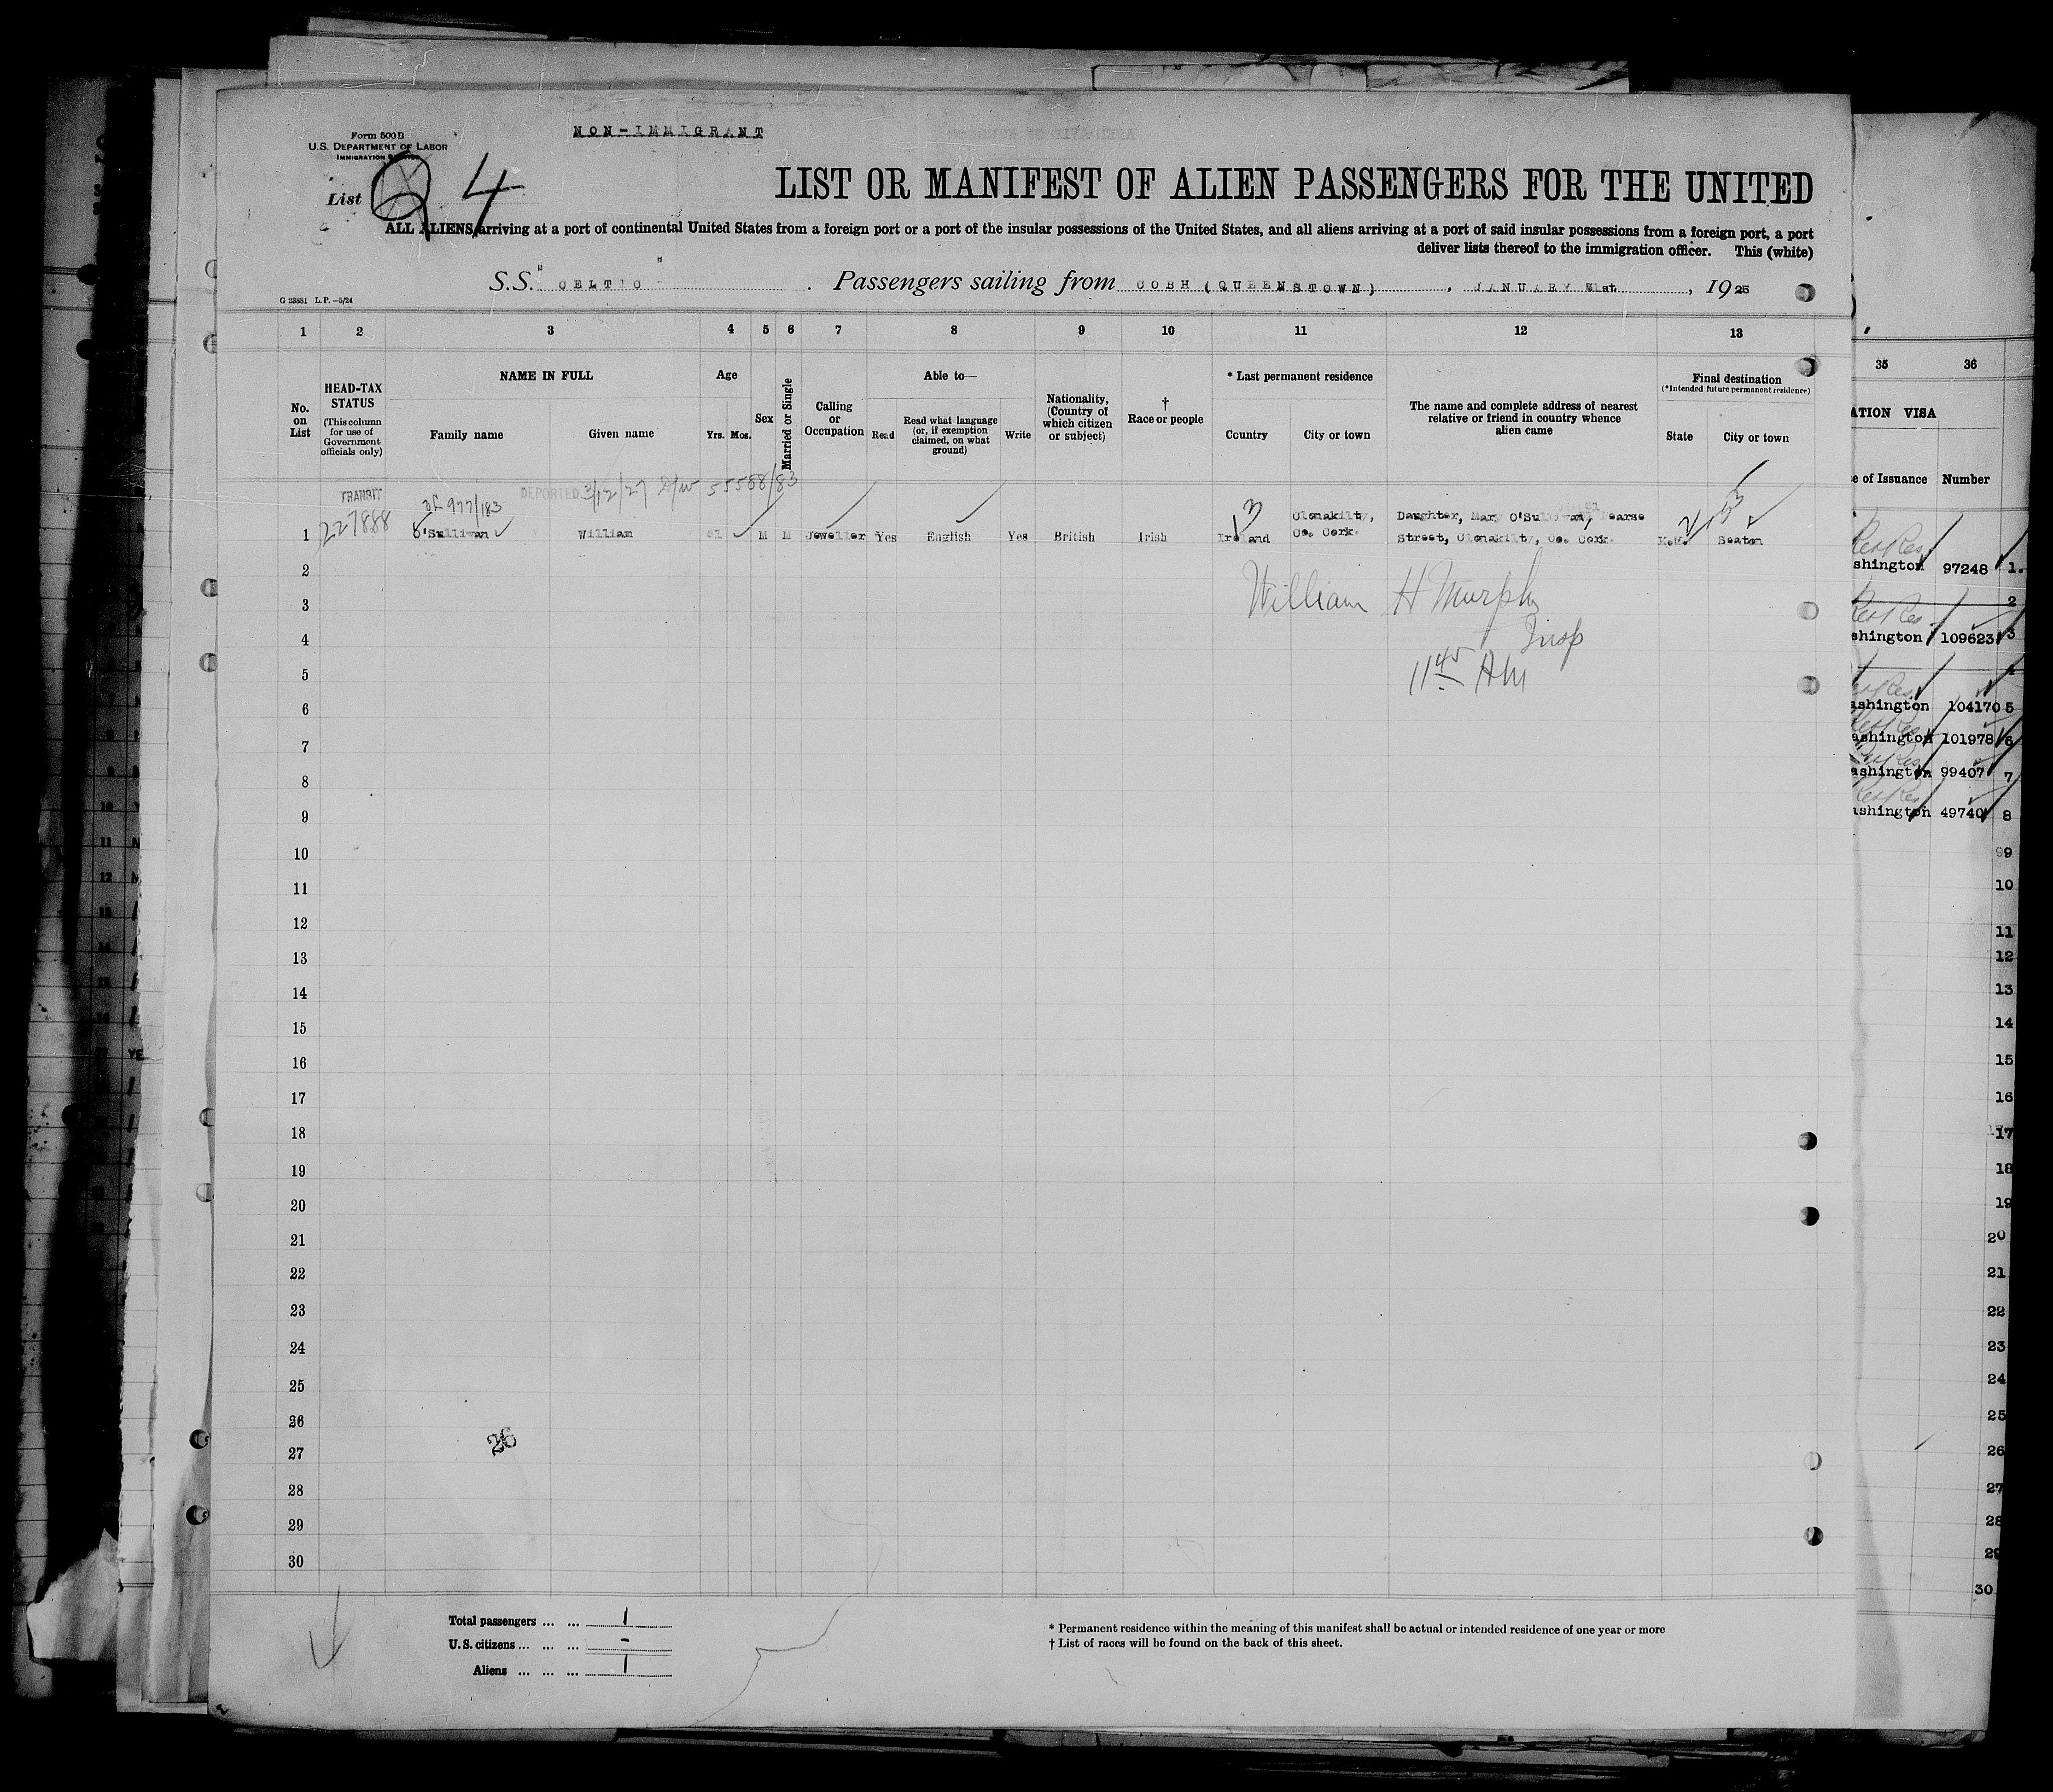 Form 500 B
U.S. DEPARTMENT OF LABOR
IMMIGRATION
NON-IMMIGRANT
List 4
LIST OR MANIFEST OF ALIEN PASSENGERS FOR THE UNITED
ALL ALIENS arriving at a port of continental United States from a foreign port or a port of the insular possessions of the United States, and all aliens arriving at a port of said insular possessions from a foreign port, a port
deliver lists thereof to the immigration officer. This (white)
S.S. "CELTIC" Passengers sailing from COBH (QUEENSTOWN), JANUARY 31st, 1925
G 23881 L.P.—5/24
1 2 3 4 5 6 7 8 9 10 11 12 13
No. on List
HEAD-TAX STATUS
(This column for use of Government officials only)
NAME IN FULL
Family name
Given name
Age
Yrs. Mos.
Sex
Married or Single
Calling or Occupation
Able to—
Read
Read what language (or, if exemption claimed, on what ground)
Write
Nationality, (Country of which citizen or subject)
† Race or people
* Last permanent residence
Country
City or town
The name and complete address of nearest relative or friend in country whence alien came
Final destination
(*Intended future permanent residence)
State
City or town
TRANSIT
977/183
DEPORTED 3/12/27 55588/83
1 227888 O'Sullivan William 51 M M Jeweller Yes English Yes British Irish Ireland Clonakilty, Co. Cork. Daughter, Mary O'Sullivan, Pearse
Street, Clonakilty, Co. Cork. Seaton
William H Murphy
Insp
11 45 AM
2
3
4
5
6
7
8
9
10
11
12
13
14
15
16
17
18
19
20
21
22
23
24
25
26
27
28
29
30
26
Total passengers ... ... 1
U.S. citizens ... ... ... -
Aliens ... ... ... 1
* Permanent residence within the meaning of this manifest shall be actual or intended residence of one year or more
† List of races will be found on the back of this sheet.
35 36
ATION VISA
e of Issuance Number
shington 97248 1.
2
shington 109623 3
4
ashington 104170 5
ashington 101978 6
ashington 99407 7
ashington 49740 8
9
10
11
12
13
14
15
16
17
18
19
20
21
22
23
24
25
26
27
28
29
30